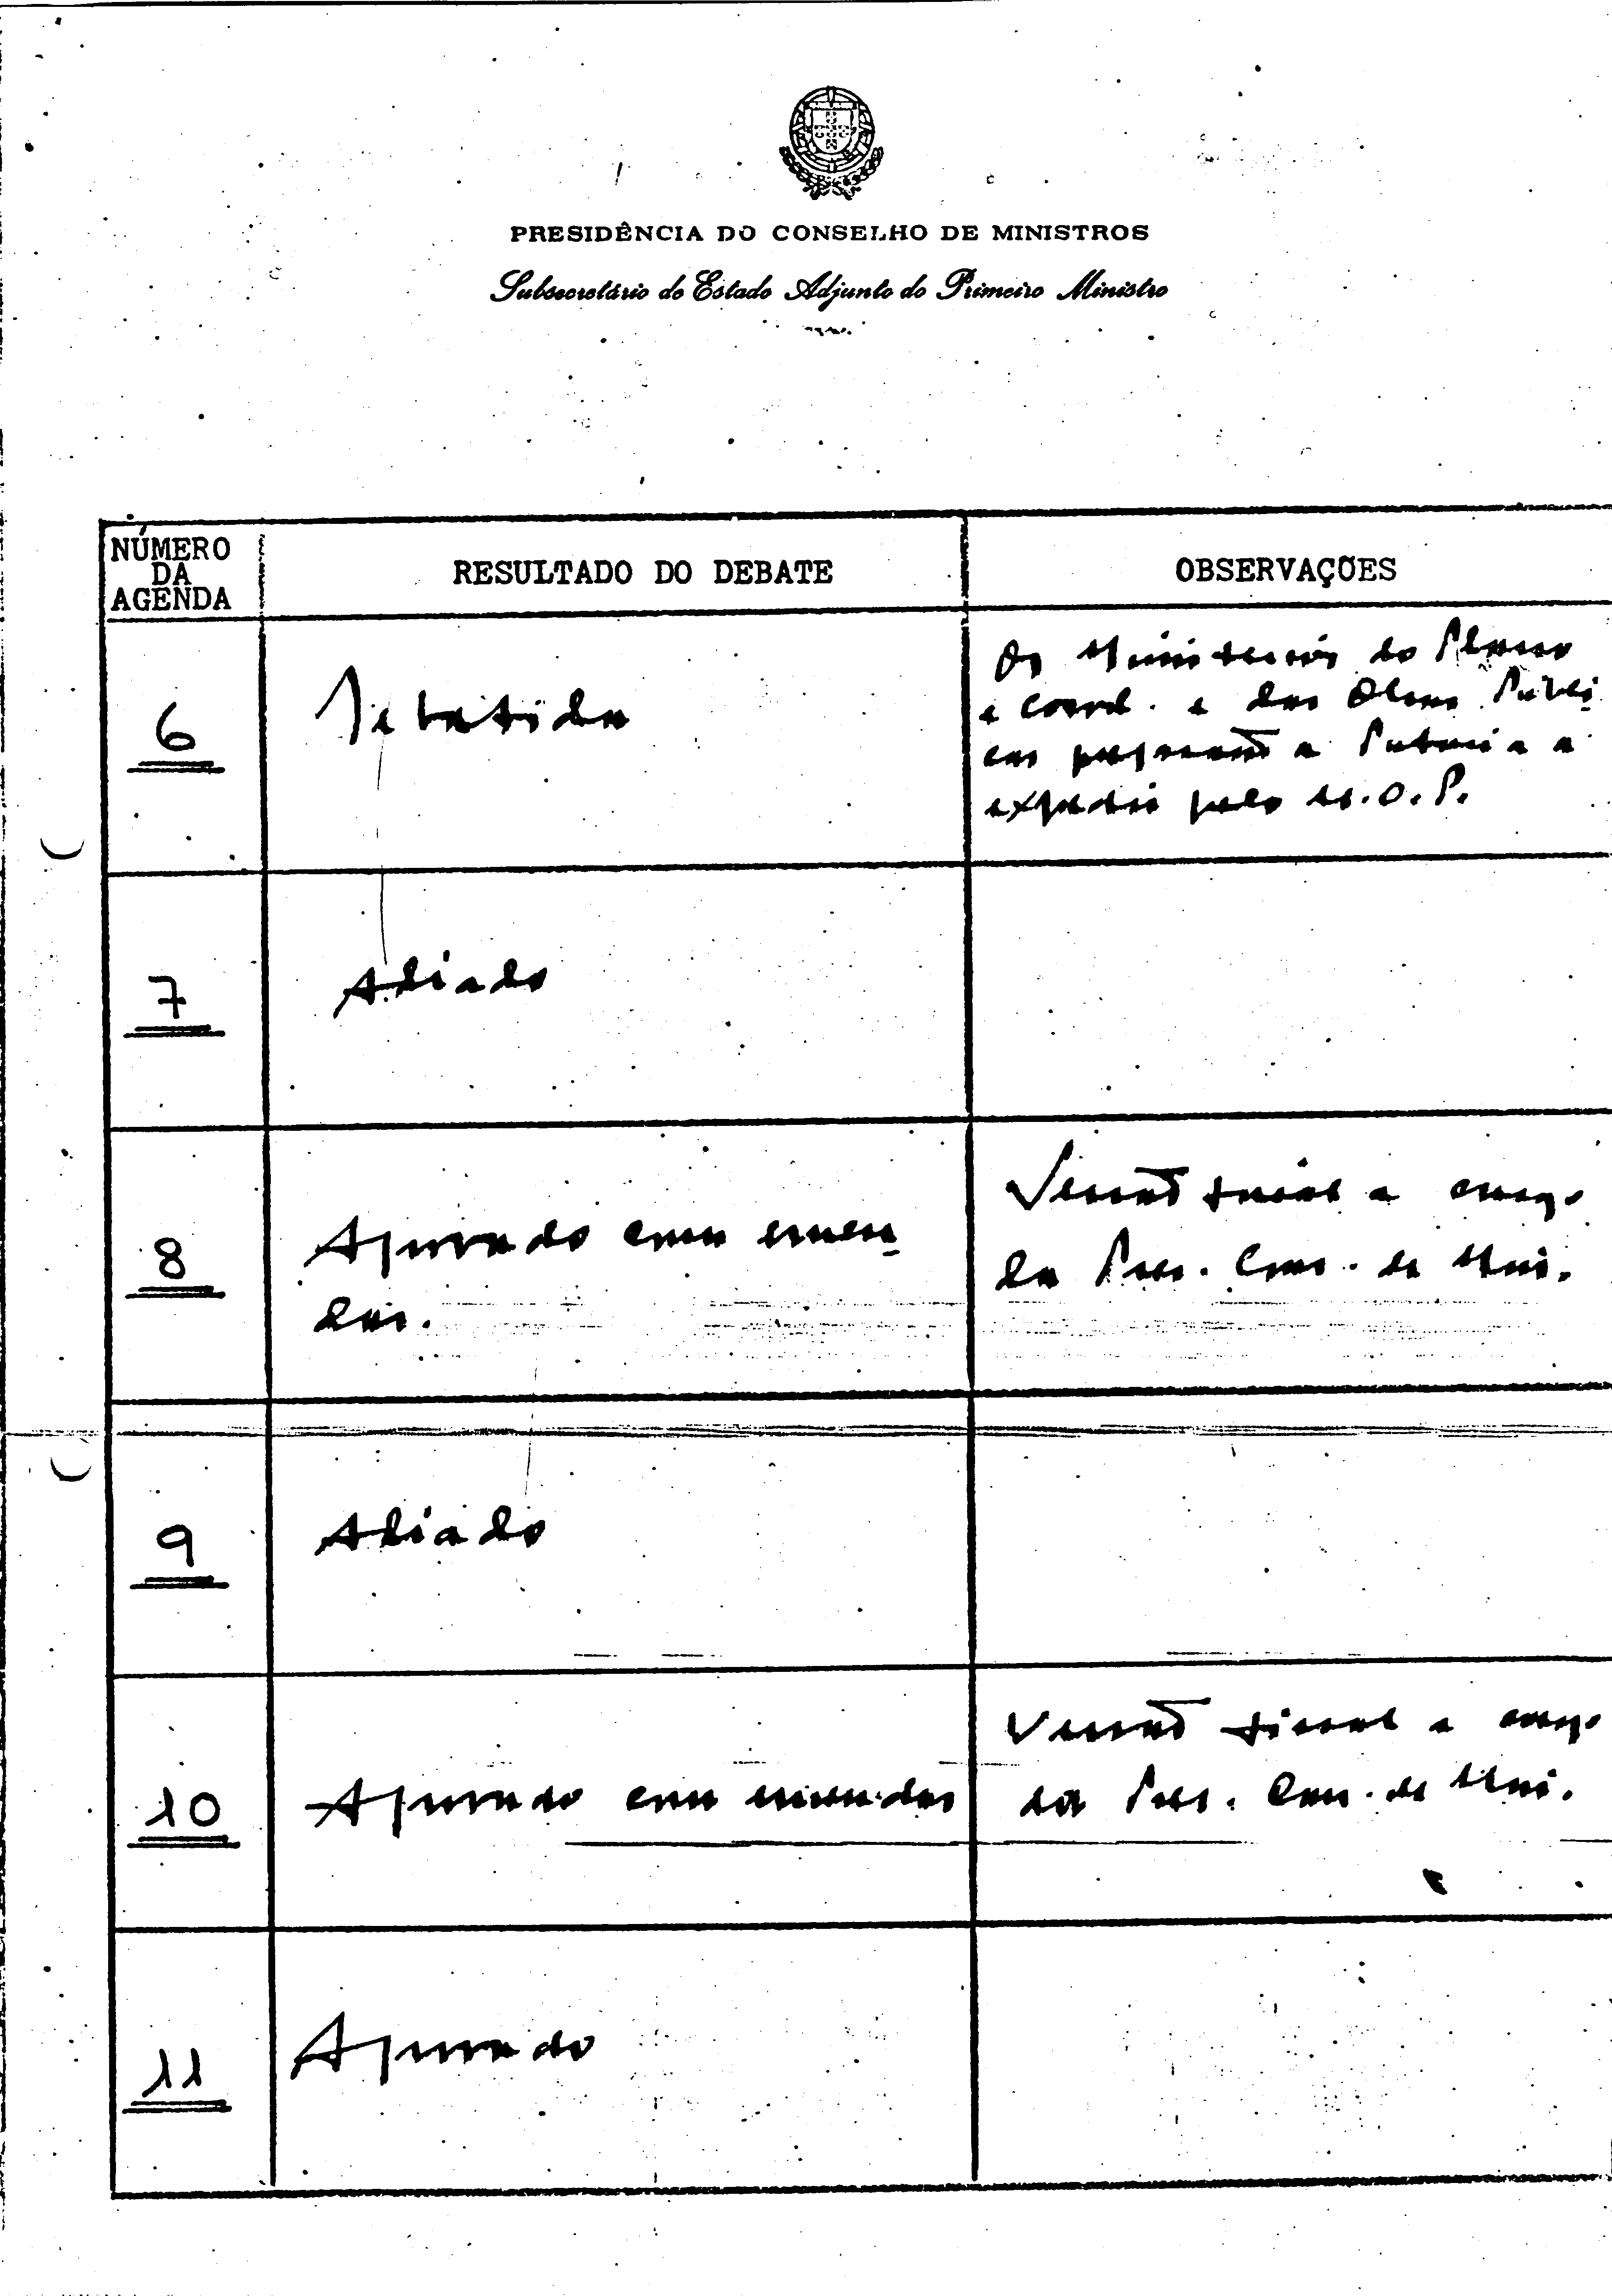 PRESIDÊNCIA DO CONSELHO DE MINISTROS
Subsecretário de Estado Adjunto do Primeiro Ministro
NÚMERO
DA
AGENDA
RESULTADO DO DEBATE
OBSERVAÇÕES
6
Debatida
Os Ministérios do Plano
e Coord. e das Obras Públi
cas prepararão a Portaria a
expedir pelo M.O.P.
7
Adiado
8
Aprovado com emen
das.
Versão final a cargo
da Pres. Cons. de Min.
9
Adiado
10
Aprovado com emendas
Versão final a cargo
da Pres. Con. de Min.
11
Aprovado